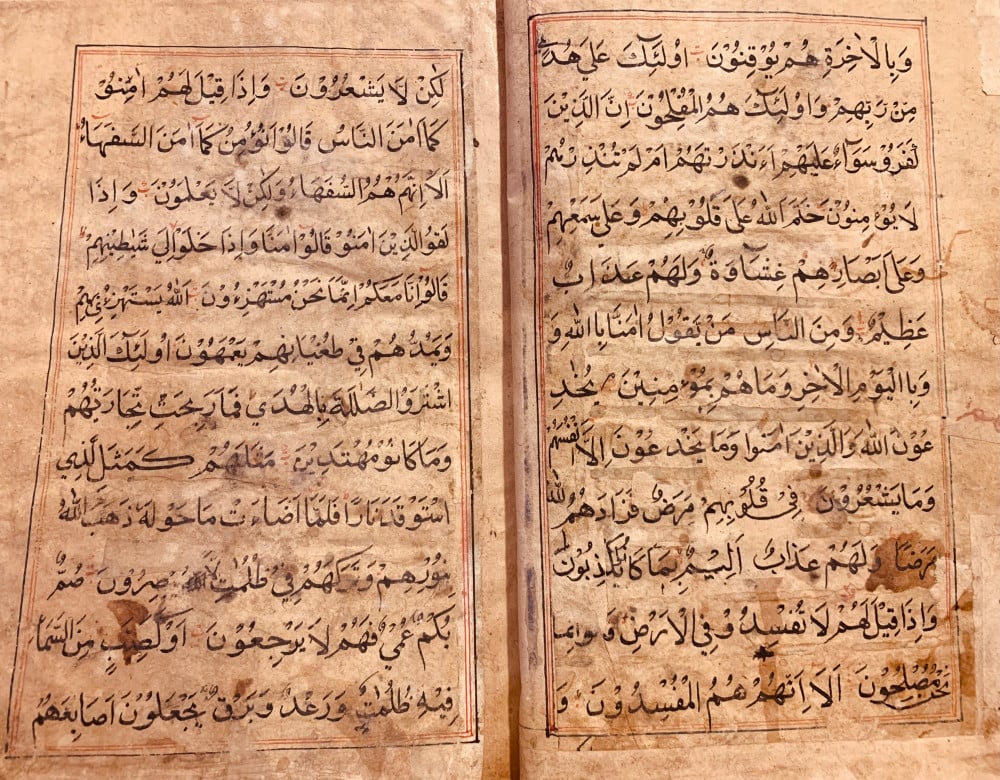 وَبِالْاٰخِرَةِ هُمْ يُوْقِنُوْنَ اُولٰٓئِكَ عَلٰى هُدًى
مِنْ رَبِّهِمْ وَاُولٰٓئِكَ هُمُ الْمُفْلِحُوْنَ اِنَّ الَّذِيْنَ
كَفَرُوْ سَوَآءٌ عَلَيْهِمْ ءَاَنْذَرْتَهُمْ اَمْ لَمْ تُنْذِرْهُمْ
لَا يُوْءْمِنُوْنَ خَتَمَ اللّٰهُ عَلٰى قُلُوْبِهِمْ وَعَلٰى سَمْعِهِمْ
وَعَلٰٓى اَبْصَارِهِمْ غِشَاوَةٌ وَلَهُمْ عَذَابٌ
عَظِيْمٌ وَمِنَ النَّاسِ مَنْ يَقُوْلُ اٰمَنَّا بِاللّٰهِ وَ
وَبِاالْيَوْمِ الْاٰخِرِ وَمَا هُمْ بِمُوْءْمِنِيْنَ يُخٰدِ
عُوْنَ اللّٰهَ وَالَّذِيْنَ اٰمَنُوا وَمَا يَخْدَعُوْنَ اِلَّآ اَنْفُسَهُمْ
وَمَا يَشْعُرُوْنَ فِىْ قُلُوْبِهِمْ مَرَضٌ فَزَادَهُمُ اللّٰهُ
مَرَضًا وَلَهُمْ عَذَابٌ اَلِيْمٌ بِمَا كَانُ يَكْذِبُوْنَ
وَاِذَا قِيْلَ لَهُمْ لَا تُفْسِدُوْ فِى الْاَرْضِ قَالُوْ اِنَّمَا
نَحْنُ مُصْلِحُوْنَ اَلَآ اِنَّهُمْ هُمُ الْمُفْسِدُوْنَ وَ
لٰكِنْ لَّا يَشْعُرُوْنَ وَاِذَا قِيْلَ لَهُمْ اٰمِنُوْ
كَمَآ اٰمَنَ النَّاسُ قَالُوْٓا اَنُؤْمِنُ كَمَآ اٰمَنَ السُّفَهَآءُ
اَلَآ اِنَّهُمْ هُمُ السُّفَهَآءُ وَلٰكِنْ لَّا يَعْلَمُوْنَ وَاِذَا
لَقُو الَّذِيْنَ اٰمَنُوْ قَالُوْٓا اٰمَنَّا وَاِذَا خَلَوْا اِلٰى شَيٰطِيْنِهِمْ
قَالُوْٓا اِنَّا مَعَكُمْ اِنَّمَا نَحْنُ مُسْتَهْزِءُوْنَ اَللّٰهُ يَسْتَهْزِءُ بِهِمْ
وَيَمُدُّهُمْ فِىْ طُغْيَانِهِمْ يَعْمَهُوْنَ اُولٰٓئِكَ الَّذِيْنَ
اشْتَرَوُ الضَّلٰلَةَ بِالْهُدٰى فَمَا رَبِحَتْ تِجَارَتُهُمْ
وَمَا كَانُوْ مُهْتَدِيْنَ مَثَلُهُمْ كَمَثَلِ لَّذِى
اسْتَوْقَدَ نَارًا فَلَمَّآ اَضَآءَتْ مَا حَوْلَهٗ ذَهَبَ اللّٰهُ
بِنُوْرِهِمْ وَتَرَكَهُمْ فِىْ ظُلُمٰتٍ لَا يُبْصِرُوْنَ صُمٌّ
بُكْمٌ عُمْىٌ فَهُمْ لَا يَرْجِعُوْنَ اَوْ كَصَيِّبٍ مِنَ السَّمَآ
فِيْهِ ظُلُمٰتٌ وَرَعْدٌ وَبَرْقٌ يَجْعَلُوْنَ اَصَابِعَهُمْ